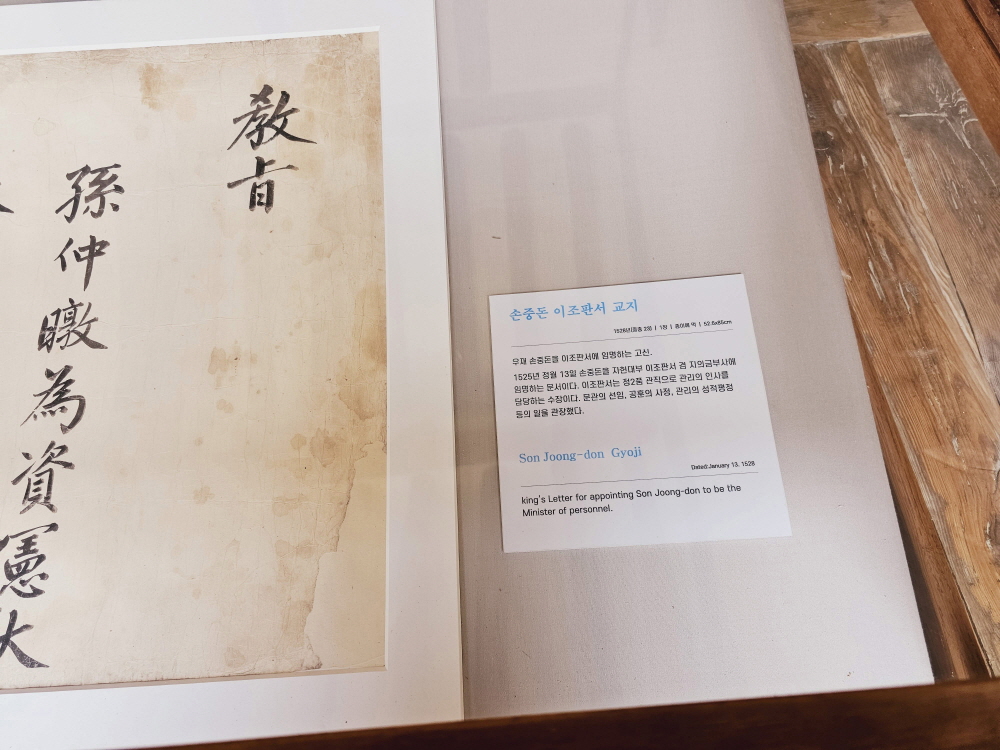 教
旨
孫
仲
暾
為
資
憲
大
손중돈 이조판서 교지
1528년(중종 23) | 1장 | 종이에 먹 | 52.8x85cm
우재 손중돈을 이조판서에 임명하는 고신.
1525년 정월 13일 손중돈을 자헌대부 이조판서 겸 지의금부사에
임명하는 문서이다. 이조판서는 정2품 관직으로 관리의 인사를
담당하는 수장이다. 문관의 선임, 공훈의 사정, 관리의 성적평정
등의 일을 관장했다.
Son Joong-don Gyoji
Dated:January 13. 1528
king's Letter for appointing Son Joong-don to be the
Minister of personnel.